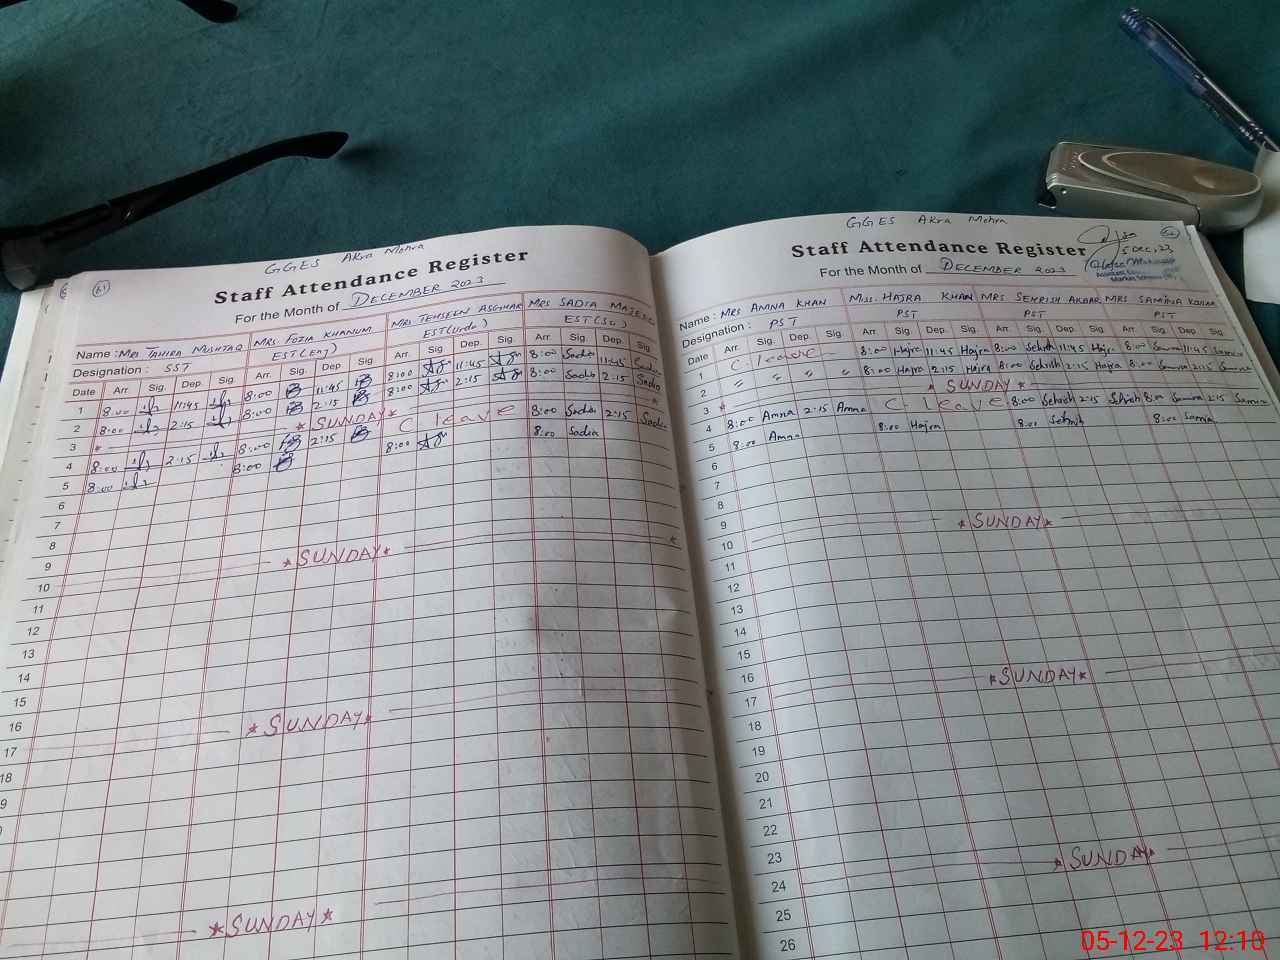 61
GGES Akra Mohra
Staff Attendance Register
For the Month of DECEMBER 2023
Name : Mrs TAHIRA MUSHTAQ MRS FOZIA KHANUM MRS TEHSEEN ASGHAR MRS SADIA MAJEED
Designation : SST EST(Eng) EST(Urdu) EST(Sc)
Date Arr. Sig. Dep. Sig. Arr. Sig. Dep. Sig. Arr. Sig. Dep. Sig. Arr. Sig. Dep. Sig.
1 8:00 11:45 8:00 11:45 8:00 11:45 8:00 Sadia 11:45 Sadia
2 8:00 2:15 8:00 2:15 8:00 2:15 8:00 Sadia 2:15 Sadia
3 * SUNDAY *
4 8:00 2:15 8:00 2:15 C leave 8:00 Sadia 2:15 Sadia
5 8:00 8:00 8:00 8:00 Sadia
6
7
8
9
10 * SUNDAY *
11
12
13
14
15
16
17 * SUNDAY *
18
* SUNDAY *
GGES Akra Mohra
Staff Attendance Register
For the Month of DECEMBER 2023
5 Dec, 23
Name : MRS AMNA KHAN Miss. HAJRA KHAN MRS SEHRISH AKBAR MRS SAMINA
Designation : PST PST PST PST
Date Arr. Sig. Dep. Sig. Arr. Sig. Dep. Sig. Arr. Sig. Dep. Sig. Arr. Sig. Dep. Sig.
1 C. leave 8:00 Hajra 11:45 Hajra 8:00 Sehrish 11:45 8:00 11:45
2 " " " " 8:00 Hajra 2:15 Hajra 8:00 Sehrish 2:15 8:00 2:15
3 * SUNDAY *
4 8:00 Amna 2:15 Amna C. leave 8:00 Sehrish 2:15 Sehrish 8:00 2:15
5 8:00 Amna 8:00 Hajra 8:00 Sehrish 8:00
6
7
8
9
10 * SUNDAY *
11
12
13
14
15
16
17 * SUNDAY *
18
19
20
21
22
23
24 * SUNDAY *
25
26
05-12-23 12:10